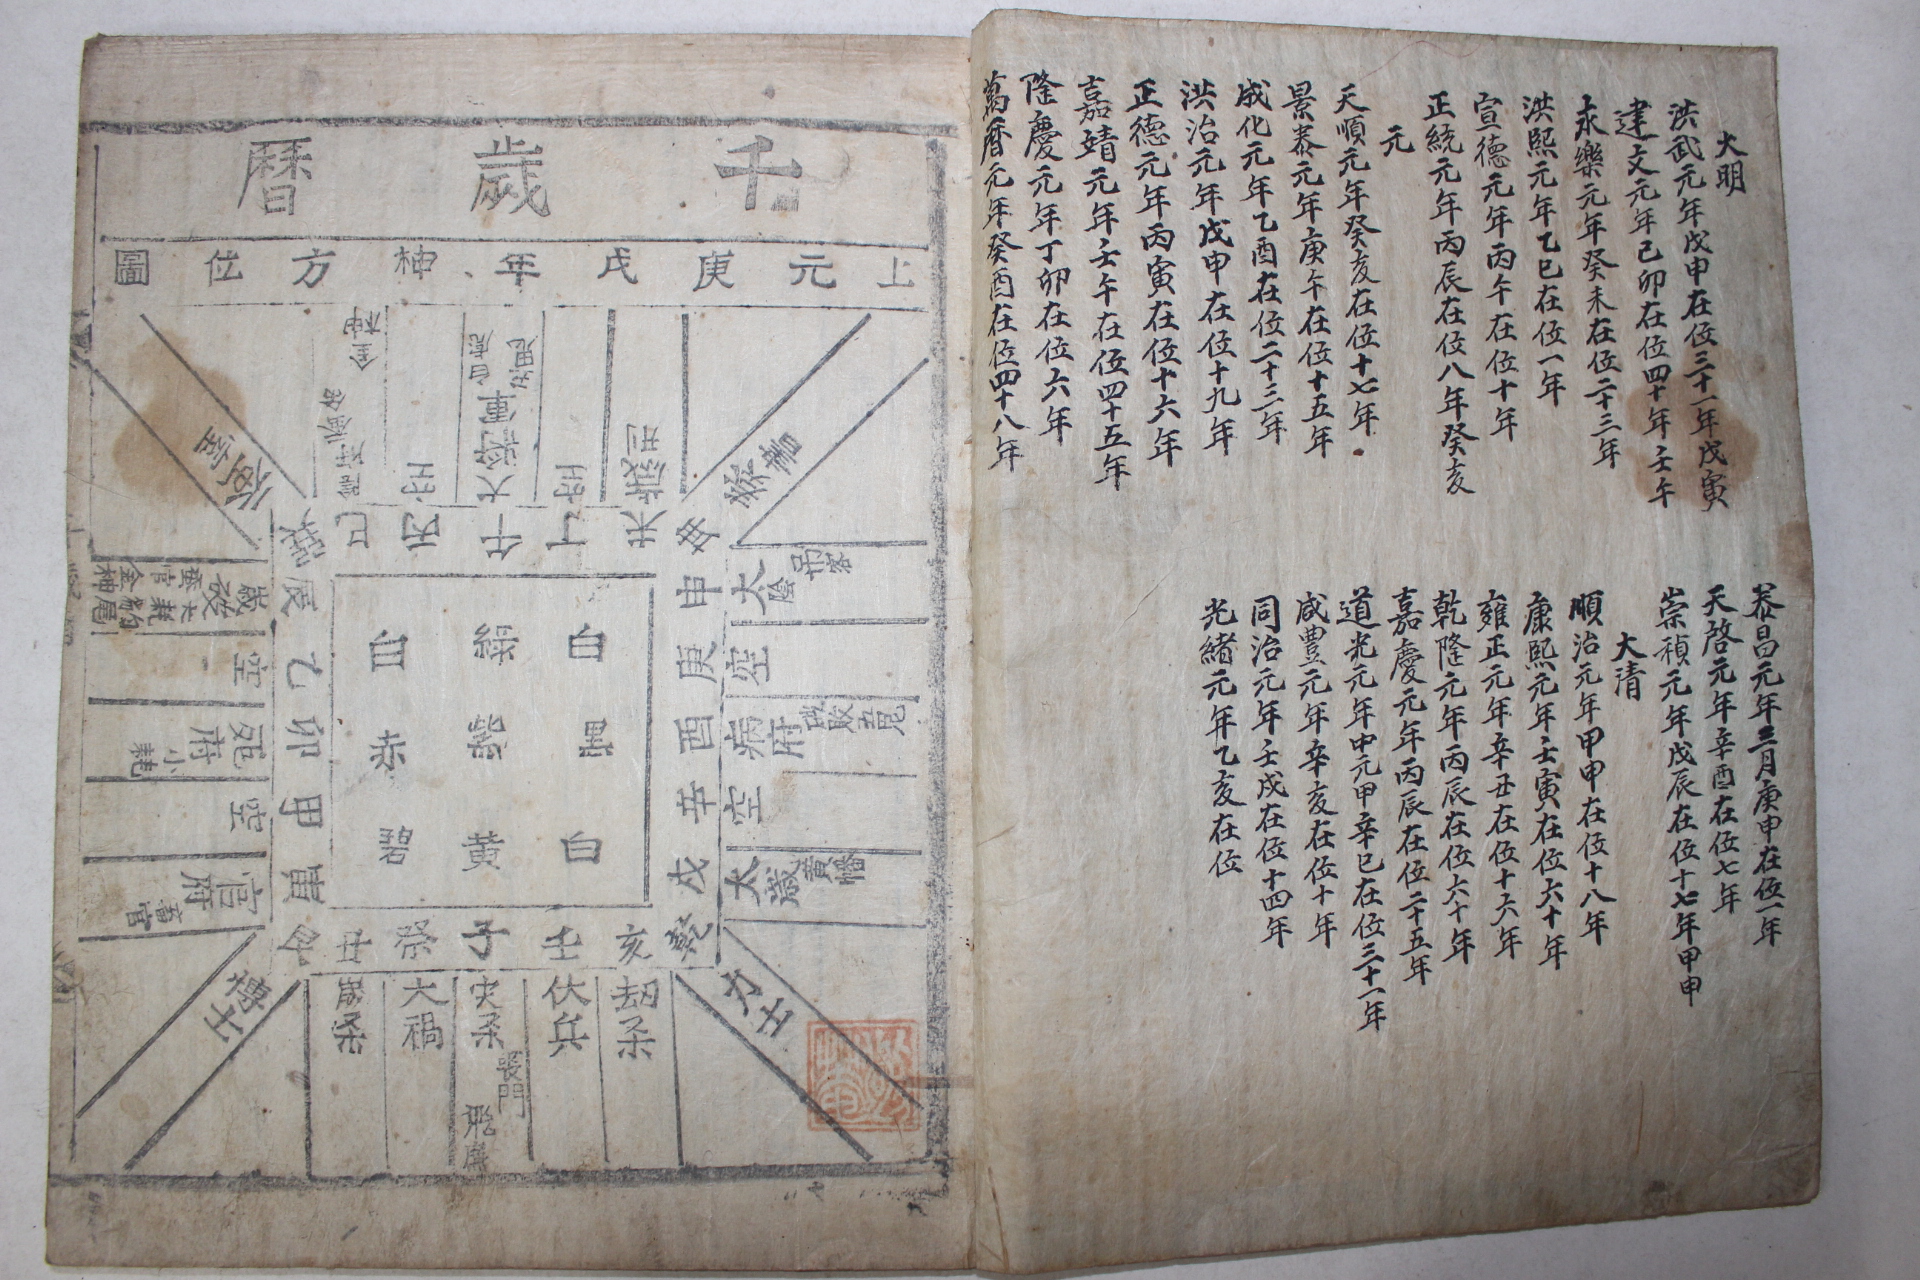 大明
洪武元年戊申在位三十一年戊寅
建文元年己卯在位四十年壬午
永樂元年癸未在位二十三年
洪熙元年乙巳在位一年
宣德元年丙午在位十年
正統元年丙辰在位八年癸亥
元
天順元年癸亥在位十七年
景泰元年庚午在位十五年
成化元年乙酉在位二十三年
洪治元年戊申在位十九年
正德元年丙寅在位十六年
嘉靖元年壬午在位四十五年
隆慶元年丁卯在位六年
萬曆元年癸酉在位四十八年
泰昌元年三月庚申在位一年
天啓元年辛酉在位七年
崇禎元年戊辰在位十七年甲申
大清
順治元年甲申在位十八年
康熙元年壬寅在位六十年
雍正元年辛丑在位十六年
乾隆元年丙辰在位六十年
嘉慶元年丙辰在位二十五年
道光元年中元甲辛巳在位三十一年
咸豊元年辛亥在位十年
同治元年壬戌在位十四年
光緖元年乙亥在位
千歲曆
上元庚戌年神方位圖
金神
白虎
大將軍
歲刑
蚕室
奏書
巽巳丙午丁未
申庚酉辛戌乾
亥壬子癸丑
寅甲卯乙辰
太陰
吊客
空
病府
空
太歲
黃幡
歲破
大耗
豹尾
蚕官
金神
空
死府
小耗
空
官府
畜官
白
白
赤
碧
黃
白
博士
力士
歲杀
大禍
灾杀
喪門
飛廉
伏兵
劫杀